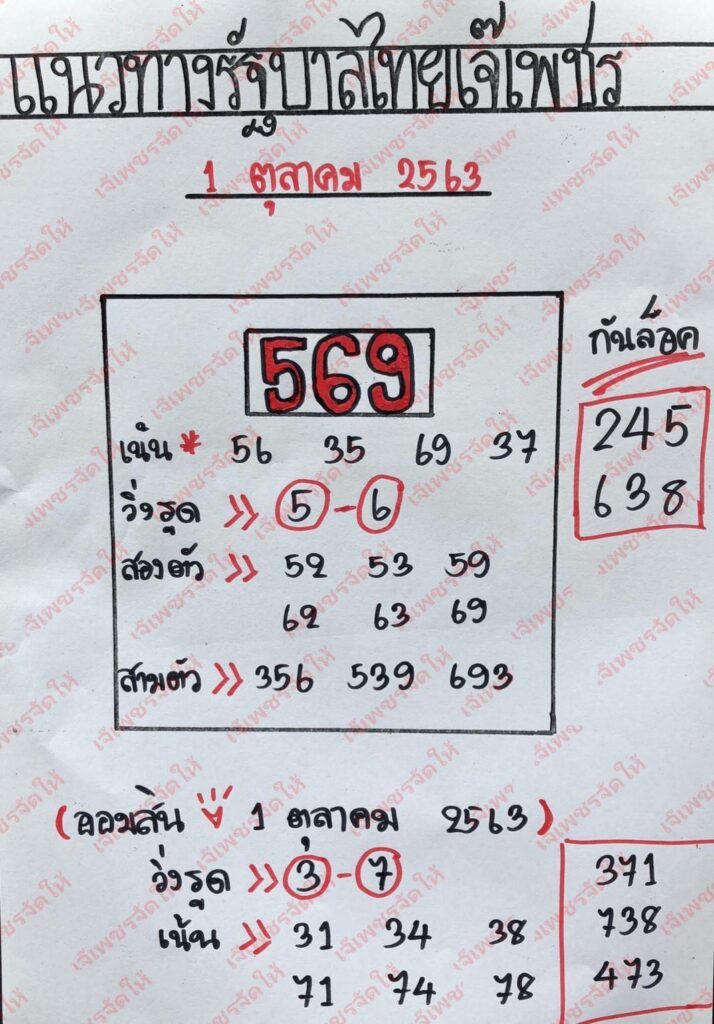 แนวทางรัฐบาลไทยเจ๊เพชร
1 ตุลาคม 2563
569
เน้น * 56 35 69 37
วิ่งรูด >> 5 - 6
สองตัว >> 52 53 59
62 63 69
สามตัว >> 356 539 693
กันล็อค
245
638
(ออมสิน 1 ตุลาคม 2563)
วิ่งรูด >> 3 - 7
เน้น >> 31 34 38
71 74 78
371
738
473
เจ๊เพชรจัดให้